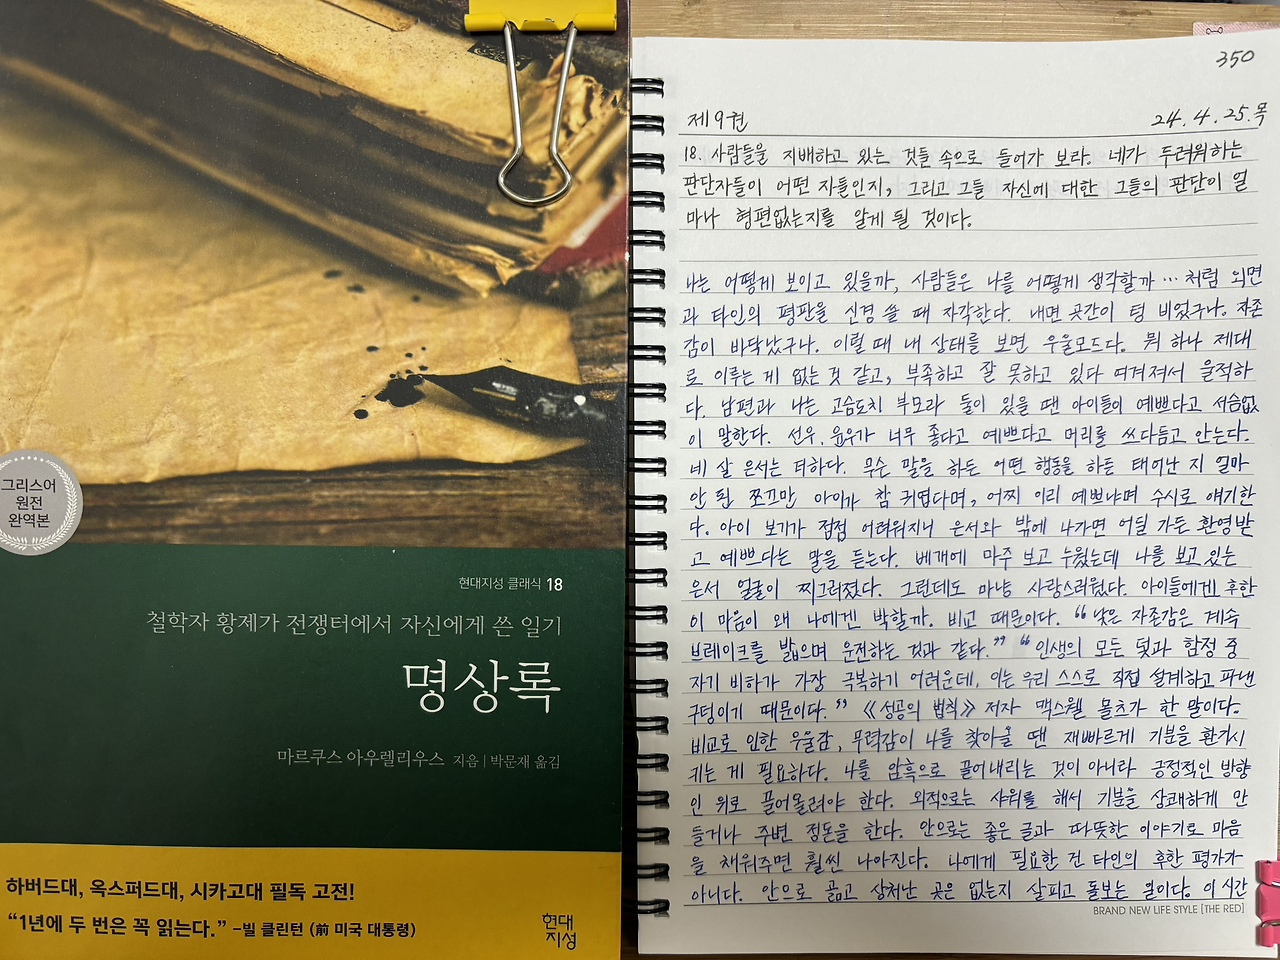 그리스어
원전
완역본
현대지성 클래식 18
철학자 황제가 전쟁터에서 자신에게 쓴 일기
명상록
마르쿠스 아우렐리우스 지음 | 박문재 옮김
하버드대, 옥스퍼드대, 시카고대 필독 고전!
“1년에 두 번은 꼭 읽는다.” –빌 클린턴 (前 미국 대통령)
현대
지성
350
제9권 24.4.25.목
18. 사람들을 지배하고 있는 것들 속으로 들어가 보라. 네가 두려워하는
판단자들이 어떤 자들인지, 그리고 그들 자신에 대한 그들의 판단이 얼
마나 형편없는지를 알게 될 것이다.
나는 어떻게 보이고 있을까, 사람들은 나를 어떻게 생각할까… 처럼 외면
과 타인의 평판을 신경 쓸 때 자각한다. 내면 공간이 텅 비었구나. 자존
감이 바닥났구나. 이럴 때 내 상태를 보면 우울모드다. 뭐 하나 제대
로 이루는 게 없는 것 같고, 부족하고 잘 못하고 있다 여겨져서 울적하
다. 남편과 나는 고슴도치 부모라 둘이 있을 땐 아이들이 예쁘다고 서슴없
이 말한다. 선우, 윤우가 너무 좋다고 예쁘다고 머리를 쓰다듬고 안는다.
네 살 은서는 더하다. 무슨 말을 하든 어떤 행동을 하든 태어난 지 얼마
안 된 쪼끄만 아이가 참 귀엽다며, 어찌 이리 예쁘냐며 수시로 얘기한
다. 아이 보기가 점점 어려워지니 은서와 밖에 나가면 어딜 가든 환영받
고 예쁘다는 말을 듣는다. 베개에 마주 보고 누웠는데 나를 보고 있는
은서 얼굴이 찌그러졌다. 그런데도 마냥 사랑스러웠다. 아이들에겐 후한
이 마음이 왜 나에겐 박할까. 비교 때문이다. “낮은 자존감은 계속
브레이크를 밟으며 운전하는 것과 같다.” “인생의 모든 덫과 함정 중
자기 비하가 가장 극복하기 어려운데, 이는 우리 스스로 직접 설계하고 파낸
구덩이기 때문이다.” 《성공의 법칙》 저자 맥스웰 몰츠가 한 말이다.
비교로 인한 우울감, 무력감이 나를 찾아올 땐 재빠르게 기분을 환기시
키는 게 필요하다. 나를 암흑으로 끌어내리는 것이 아니라 긍정적인 방향
인 위로 끌어올려야 한다. 외적으로는 샤워를 해서 기분을 상쾌하게 만
들거나 주변 정돈을 한다. 안으로는 좋은 글과 따뜻한 이야기로 마음
을 채워주면 훨씬 나아진다. 나에게 필요한 건 타인의 후한 평가가
아니다. 안으로 곪고 상처난 곳은 없는지 살피고 돌보는 일이다. 이 시간
BRAND NEW LIFE STYLE [THE RED]